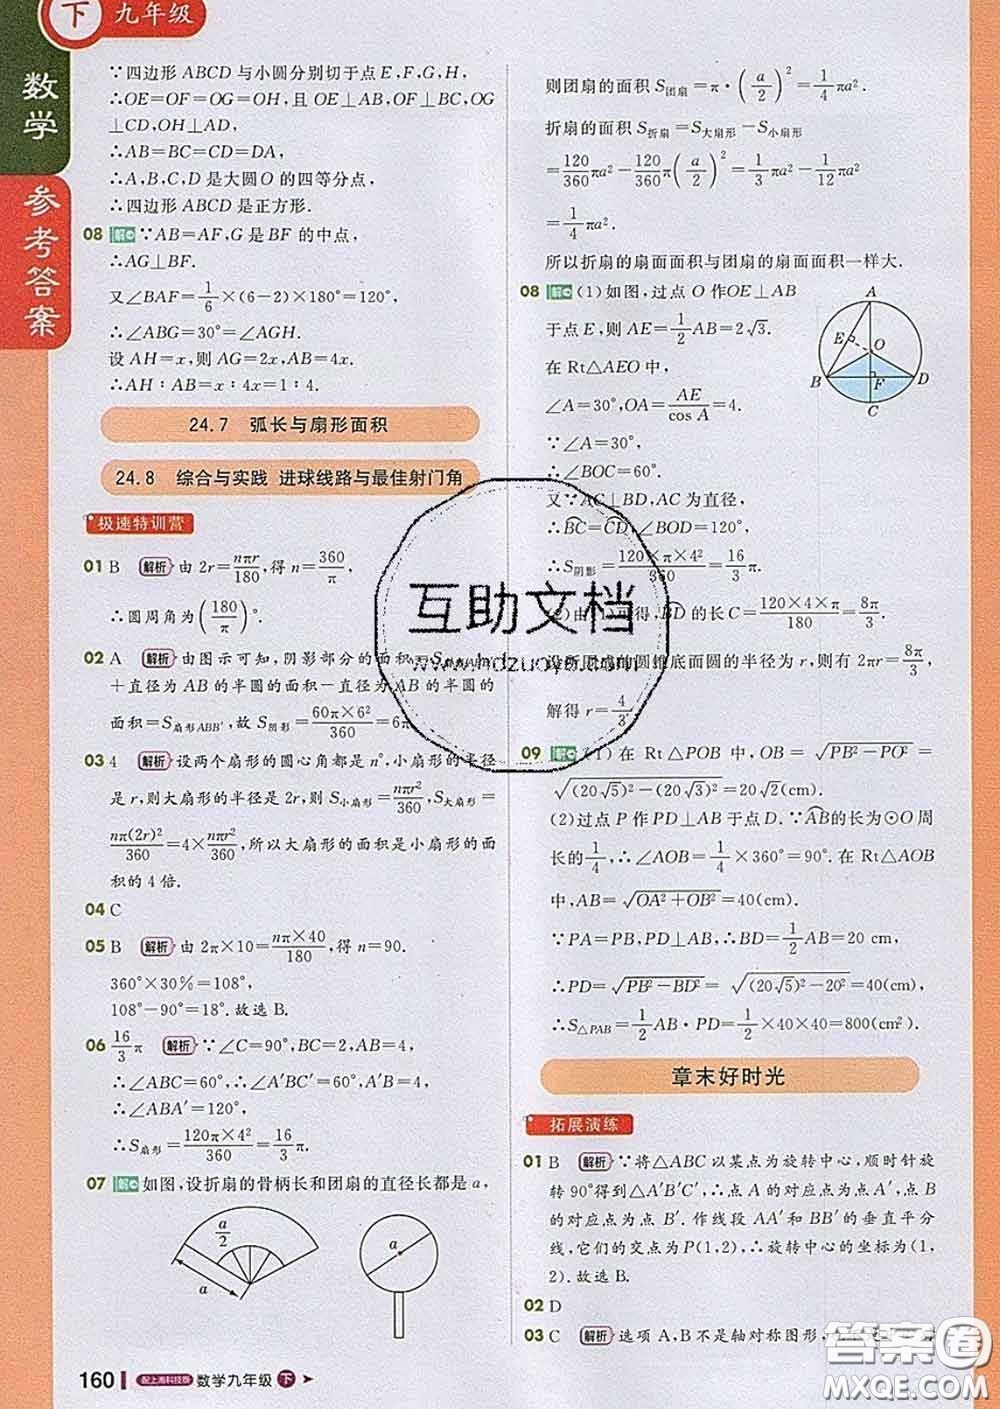 下 九年级
数学
参考答案
∵四边形 ABCD 与小圆分别切于点 E,F,G,H,
∴OE=OF=OG=OH,且 OE⊥AB,OF⊥BC,OG
⊥CD,OH⊥AD,
∴AB=BC=CD=DA,
∴A,B,C,D 是大圆O 的四等分点,
∴四边形 ABCD 是正方形.
08 解 ∵AB=AF,G 是 BF 的中点,
∴AG⊥BF.
又∠BAF=1/6×(6-2)×180°=120°,
∴∠ABG=30°=∠AGH.
设 AH=x,则 AG=2x,AB=4x.
∴AH∶AB=x∶4x=1∶4.
24.7 弧长与扇形面积
24.8 综合与实践 进球线路与最佳射门角
极速特训营
01 B 解析 由 2r=nπr/180,得 n=360/π,
∴圆周角为(180/π)°.
02 A 解析 由图示可知,阴影部分的面积=S
+直径为 AB 的半圆的面积-直径为 AB 的半圆的
面积=S扇形ABB′,故 S阴影=60π×6²/360=6π
03 4 解析 设两个扇形的圆心角都是 n°,小扇形的半径
是 r,则大扇形的半径是 2r,则 S小扇形=nπr²/360,S大扇形=
nπ(2r)²/360=4×nπr²/360,所以大扇形的面积是小扇形的面
积的 4 倍.
04 C
05 B 解析 由 2π×10=nπ×40/180,得 n=90.
360°×30%=108°,
108°-90°=18°.故选 B.
06 16/3π 解析 ∵∠C=90°,BC=2,AB=4,
∴∠ABC=60°,∴∠A′BC′=60°,A′B=4,
∴∠ABA′=120°,
∴S扇形=120π×4²/360=16/3π.
07 解 如图,设折扇的骨柄长和团扇的直径长都是 a,
a/2
a
a
则团扇的面积 S团扇=π·(a/2)²=1/4πa².
折扇的面积 S折扇=S大扇形-S小扇形
=120/360πa²-120/360π(a/2)²=1/3πa²-1/12πa²
=1/4πa².
所以折扇的扇面面积与团扇的扇面面积一样大.
08 解 (1)如图,过点 O 作OE⊥AB
于点 E,则 AE=1/2AB=2√3.
在 Rt△AEO 中,
∠A=30°,OA=AE/cos A=4.
∵∠A=30°,
∴∠BOC=60°.
又∵AC⊥BD,AC 为直径,
∴BC=CD,∠BOD=120°,
∴S阴影=120×π×4²/360=16/3π.
(2)由(1)可得,BD 的长 C=120×4×π/180=8π/3
设所围成的圆锥底面圆的半径为 r,则有 2πr=8π/3,
解得 r=4/3.
A
E
O
B
F
D
C
09 解 (1)在 Rt△POB 中,OB=√(PB²-PO²)=
√((20√5)²-(20√3)²)=20√2(cm).
(2)过点 P 作 PD⊥AB 于点 D.∵AB的长为⊙O 周
长的1/4,∴∠AOB=1/4×360°=90°.在 Rt△AOB
中,AB=√(OA²+OB²)=40(cm).
∵PA=PB,PD⊥AB,∴BD=1/2AB=20 cm,
∴PD=√(PB²-BD²)=√((20√5)²-20²)=40(cm),
∴S△PAB=1/2AB·PD=1/2×40×40=800(cm²).
章末好时光
拓展演练
01 B 解析 ∵将△ABC 以某点为旋转中心,顺时针旋
转90°得到△A′B′C′,∴点 A 的对应点为点A′,点 B
的对应点为点 B′.作线段 AA′和 BB′的垂直平分
线,它们的交点为 P(1,2),∴旋转中心的坐标为(1,
2).故选 B.
02 D
03 C 解析 选项 A,B 不是轴对称图形,
160 配上海科技版 数学九年级 下
互助文档
www.hdzuoye.com
答案圈
MXQE.COM